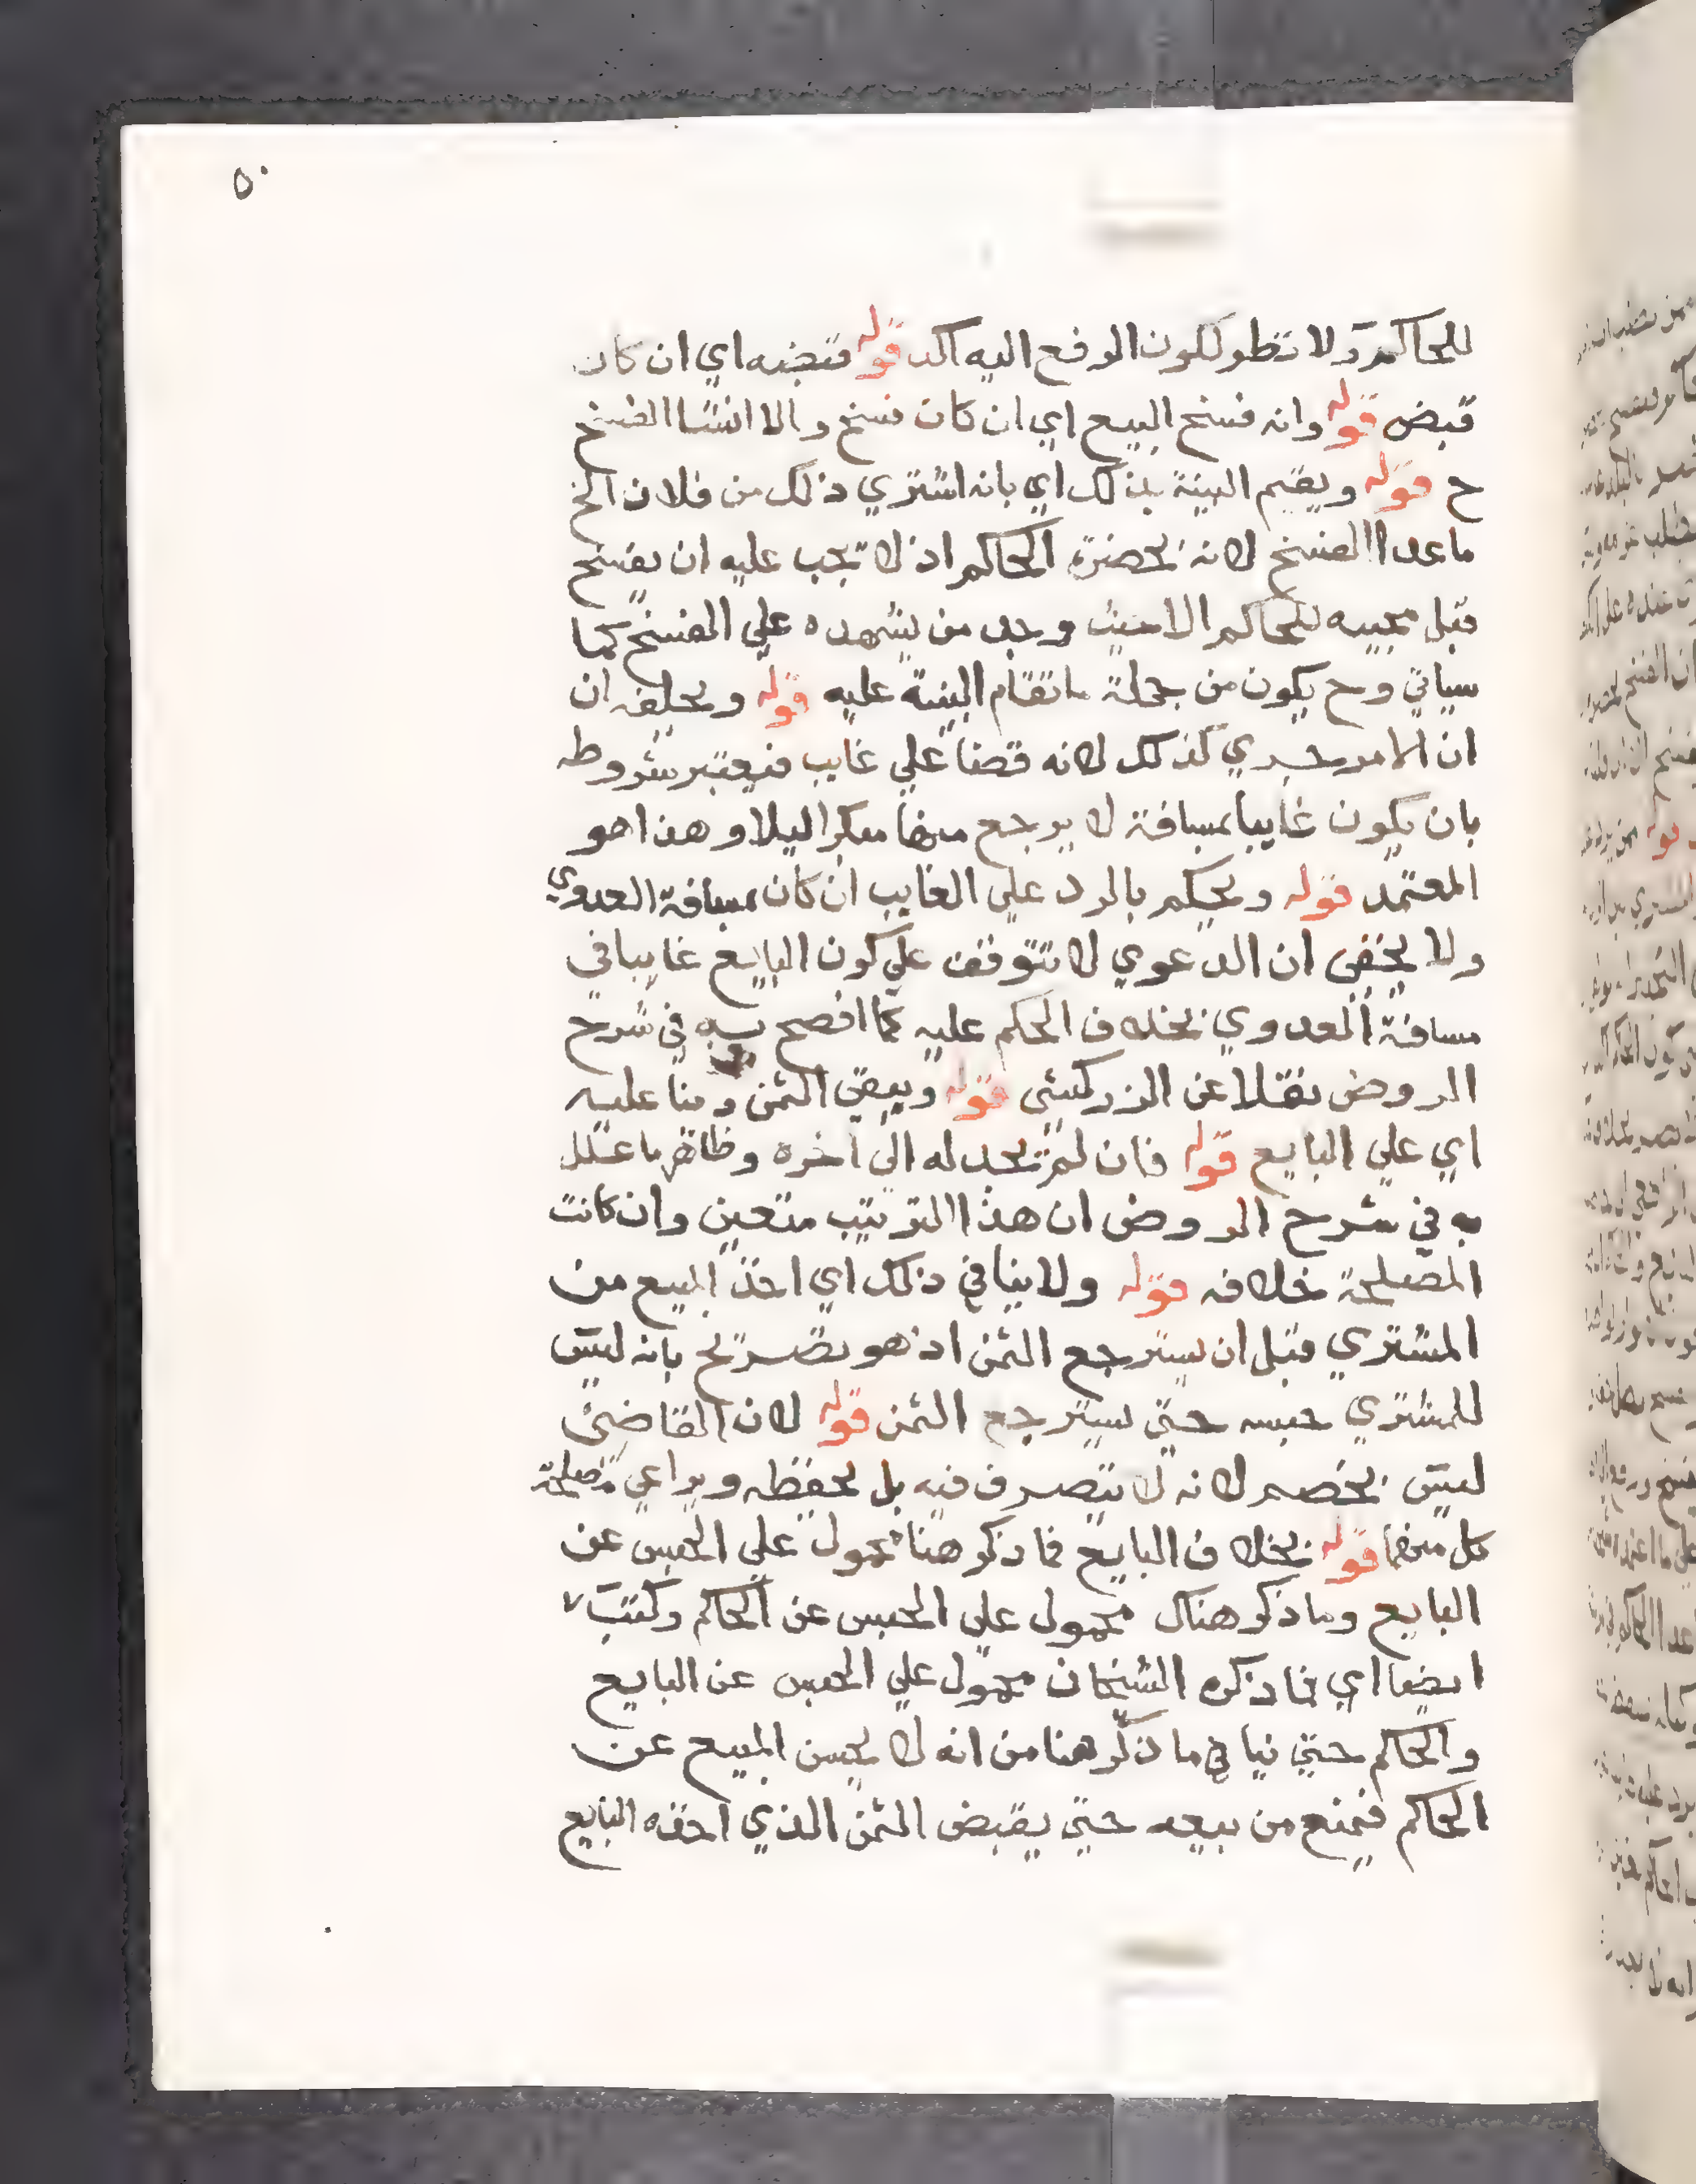 ٥٠
للحاكم ولا نظر لكون الرفع اليه اكد قوله قبضه اي ان كان
قبض قوله وانه فسخ البيع اي ان كان فسخ والا انشا الفسخ
ح قوله ويقيم البينة بذلك اي بانه اشتري ذلك من فلان الخ
ما عدا الفسخ لانه بحضرة الحاكم اذ لا يجب عليه ان يفسخ
قبل مجييه للحاكم الا حيث وجد من يشهده علي الفسخ كما
سياتي وح يكون من جملة ما تقام البينة عليه قوله ويحلفه ان
ان الامر جري كذلك لانه قضا علي غايب فيعتبر شروطه
بان يكون غايبا بمسافة لا يرجع منها مبكرا ليلا وهذا هو
المعتمد قوله ويحكم بالرد علي الغايب ان كان بمسافة العدوي
ولا يخفى ان الدعوي لا تتوقف علي كون البايع غايبا في
مسافة العدوي بخلاف الحكم عليه كما افصح به في شرح
الروض نقلا عن الزركشي قوله ويبقي الثمن دينا عليه
اي علي البايع قوله فان لم يجد له الى اخره وظاهر ما علل
به في شرح الروض ان هذا الترتيب متعين وان كانت
المصلحة خلافه قوله ولا ينافي ذلك اي اخذ المبيع من
المشتري قبل ان يسترجع الثمن اذ هو تصريح بانه ليس
للمشتري حبسه حتي يسترجع الثمن قوله لان القاضي
ليس بخصم لانه لا يتصرف فيه بل يحفظه ويراعي مصلحة
كل منهما قوله بخلاف البايع فما ذكر هنا محمول علي الحبس عن
البايع وما ذكر هناك محمول علي الحبس عن الحاكم وكتب
ايضا اي فما ذكره الشيخان محمول علي الحبس عن البايع
والحاكم حتي ينافي ما ذكر هنا من انه لا يحبس المبيع عن
الحاكم فيمنع من بيعه حتي يقبض الثمن الذي اخذه البايع